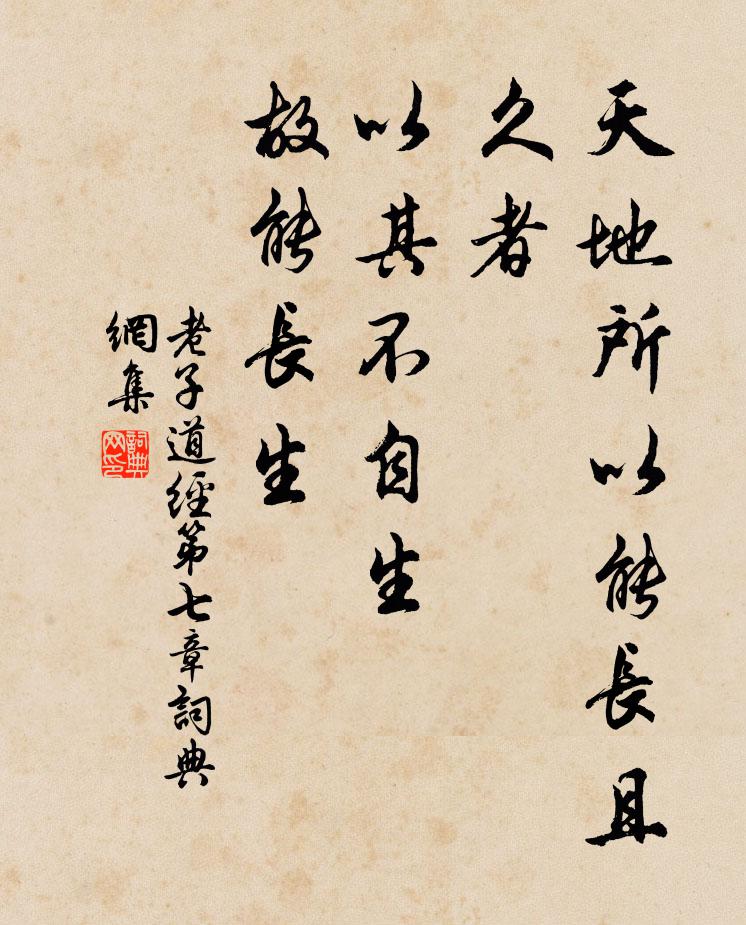 天地所以能長且
久者
以其不自生
故能長生
老子道經第七章詞典
網集
詞典
网印